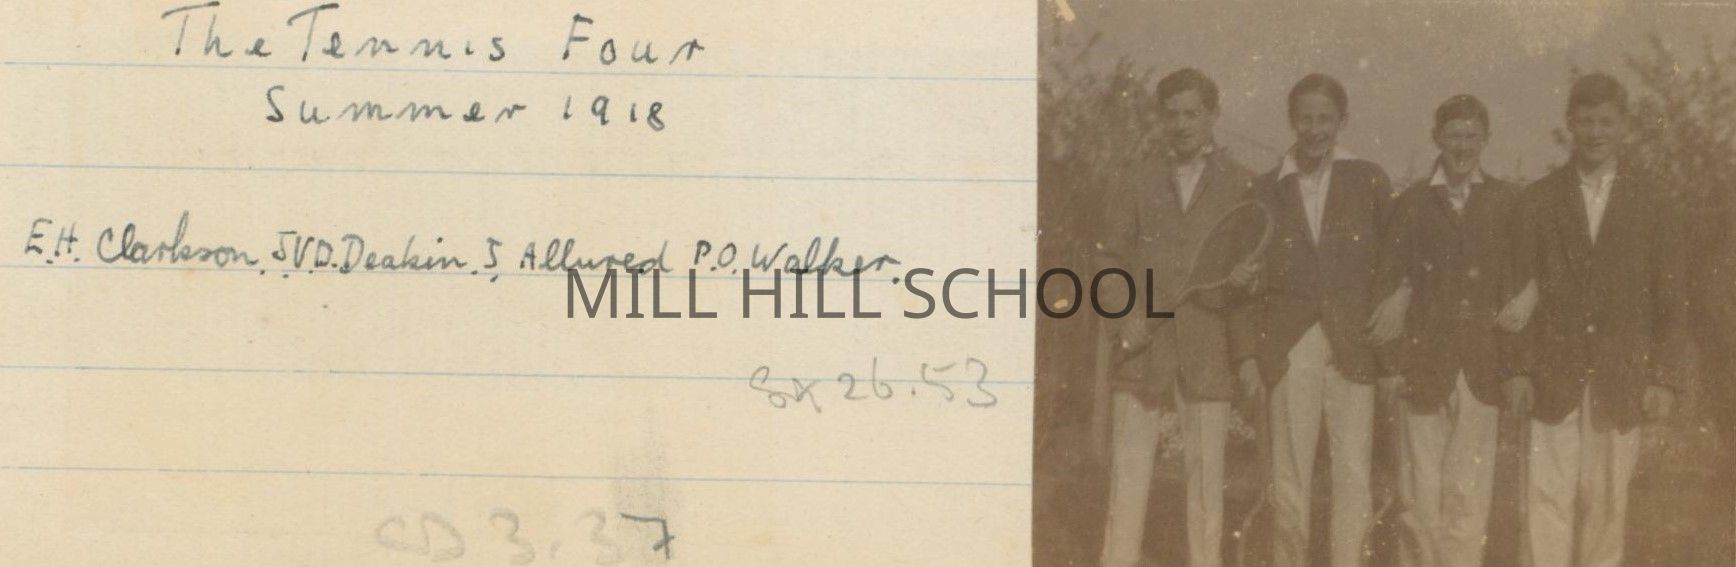 The Tennis Four
Summer 1918
E.H. Clarkson. J.V.D. Deakin. J. Allured P.O. Walker.
MILL HILL SCHOOL
26.53
3.37